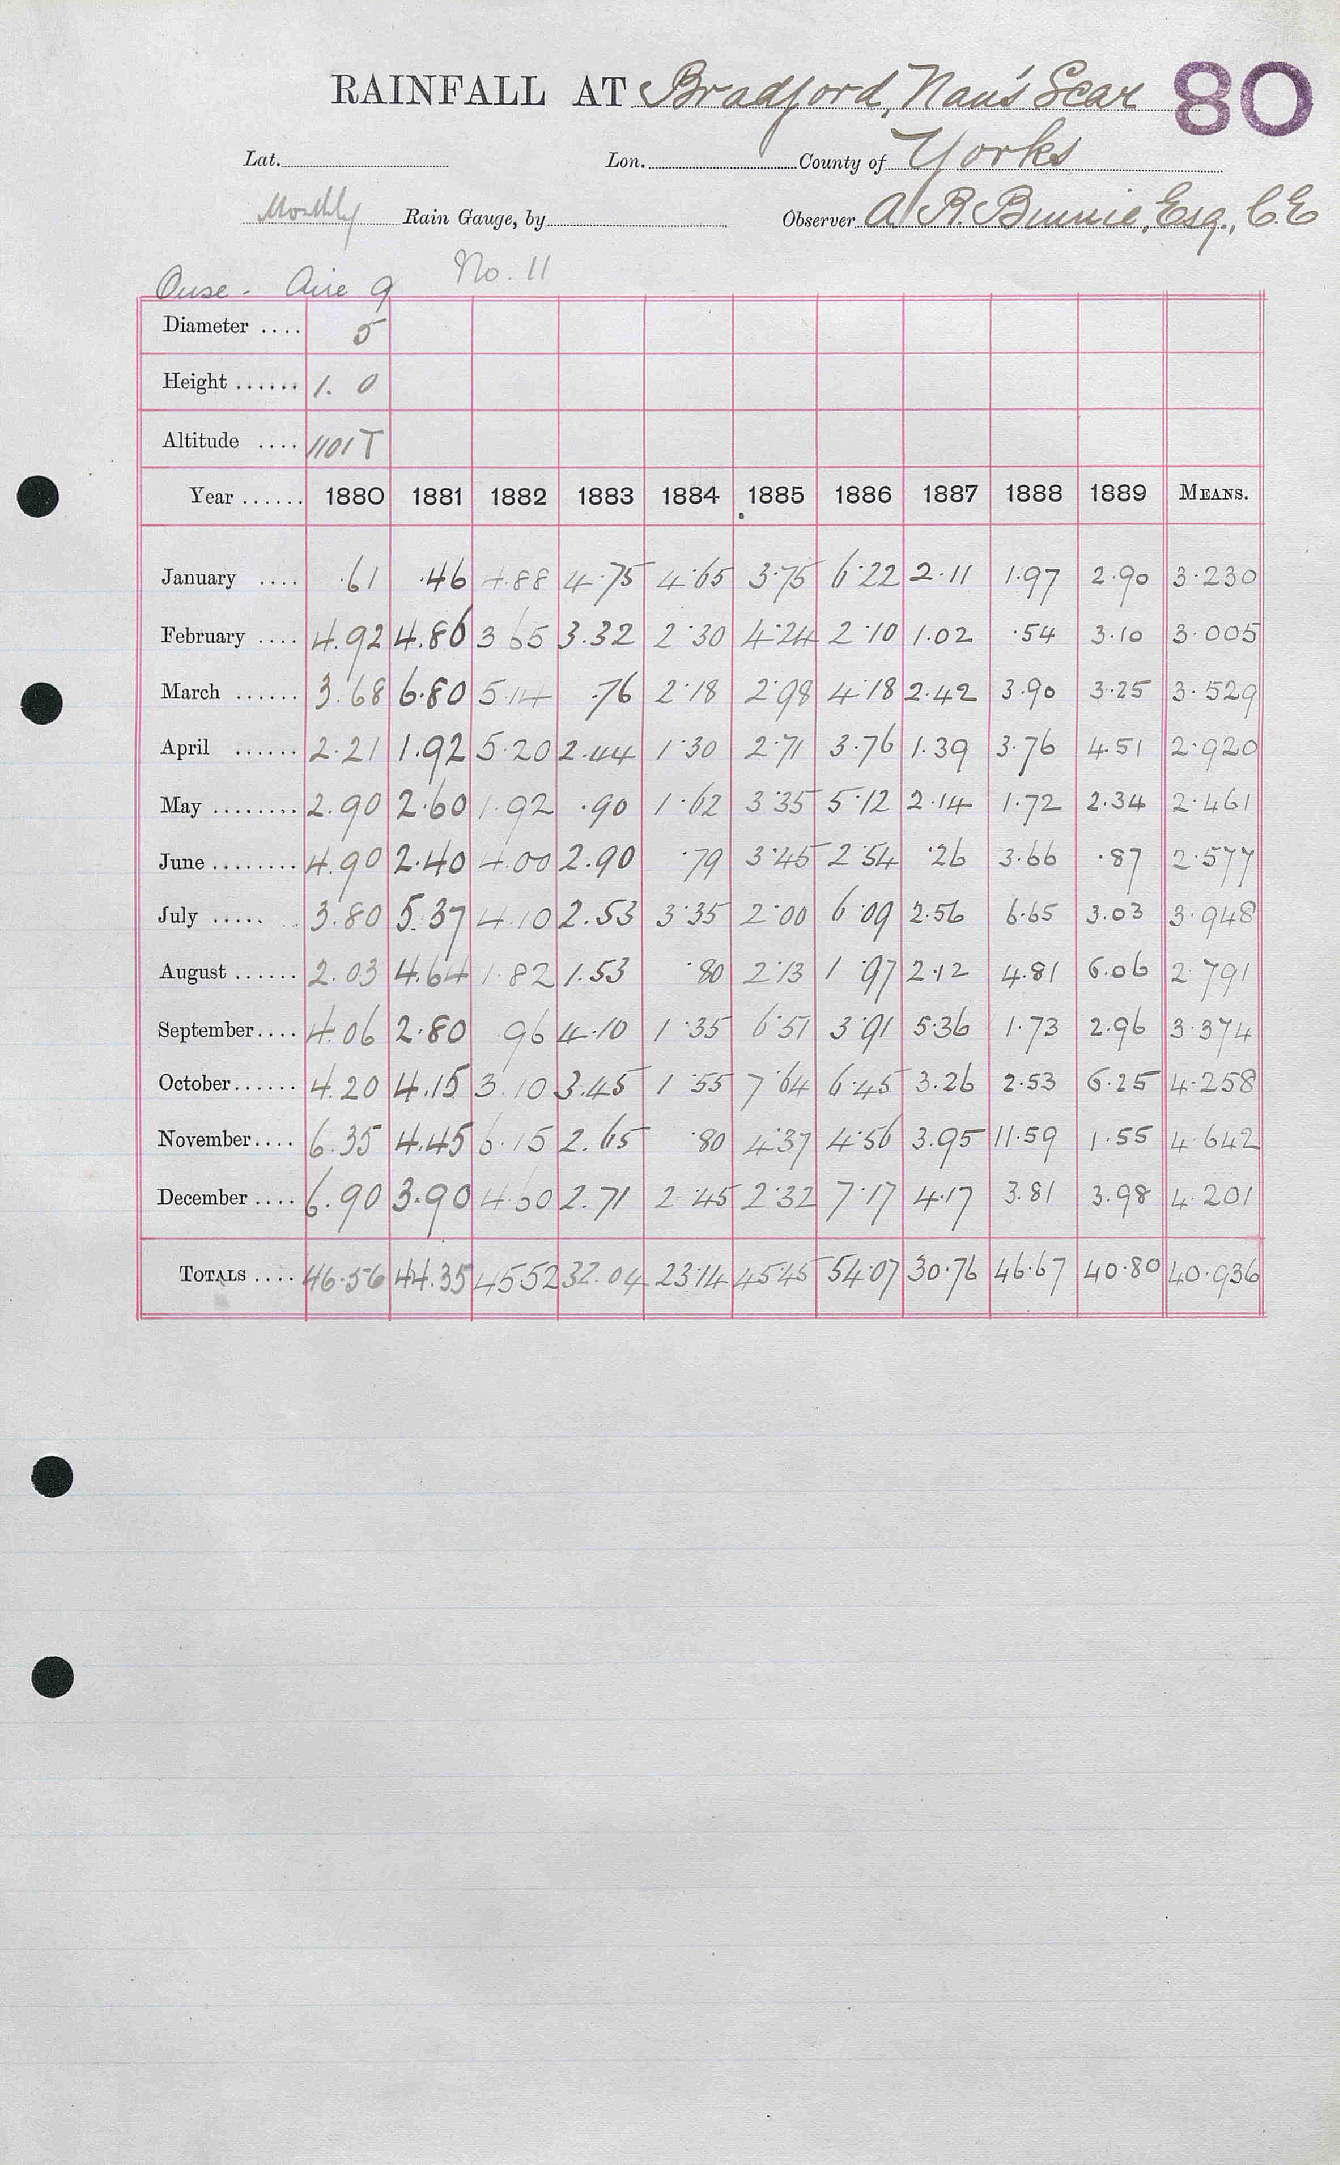 RAINFALL AT Bradford, Nan's Scar 80
Lat. Lon. County of Yorks
Monthly Rain Gauge, by Observer A R. Binnie, Esq., C.E
Ouse - Aire 9 No. 11
Diameter .... 5
Height ...... 1. 0
Altitude .... 1101 T
Year ...... 1880 1881 1882 1883 1884 1885 1886 1887 1888 1889 MEANS.
January .... .61 .46 4.88 4.75 4.65 3.75 6.22 2.11 1.97 2.90 3.230
February .... 4.92 4.86 3.65 3.32 2.30 4.24 2.10 1.02 .54 3.10 3.005
March ...... 3.68 6.80 5.14 .76 2.18 2.98 4.18 2.42 3.90 3.25 3.529
April ...... 2.21 1.92 5.20 2.44 1.30 2.71 3.76 1.39 3.76 4.51 2.920
May ........ 2.90 2.60 1.92 .90 1.62 3.35 5.12 2.14 1.72 2.34 2.461
June ........ 4.90 2.40 4.00 2.90 .79 3.45 2.54 .26 3.66 .87 2.577
July ..... 3.80 5.37 4.10 2.53 3.35 2.00 6.09 2.56 6.65 3.03 3.948
August ...... 2.03 4.64 1.82 1.53 .80 2.13 1.97 2.12 4.81 6.06 2.791
September.... 4.06 2.80 .96 4.10 1.35 6.51 3.91 5.36 1.73 2.96 3.374
October...... 4.20 4.15 3.10 3.45 1.55 7.64 6.45 3.26 2.53 6.25 4.258
November.... 6.35 4.45 6.15 2.65 .80 4.37 4.56 3.95 11.59 1.55 4.642
December .... 6.90 3.90 4.60 2.71 2.45 2.32 7.17 4.17 3.81 3.98 4.201
TOTALS .... 46.56 44.35 45.52 32.04 23.14 45.45 54.07 30.76 46.67 40.80 40.936